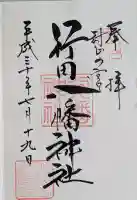 奉拝
行田八幡神社
平成三十年七月十九日